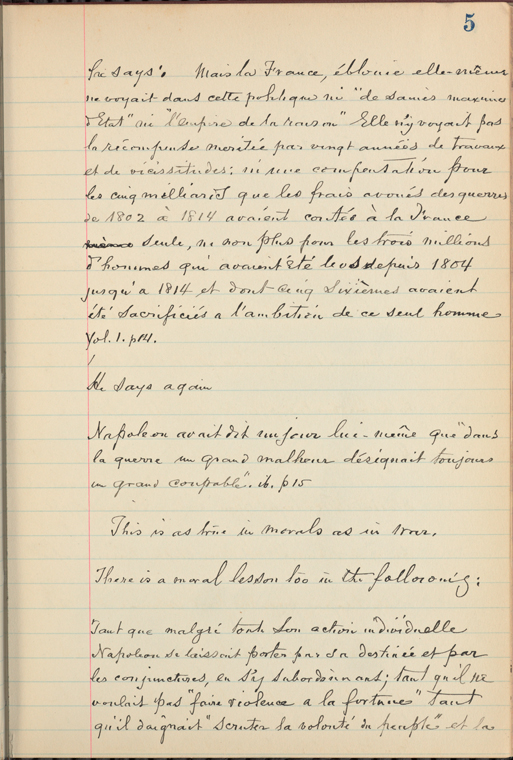 5
He says: Mais la France, éblouie elle-même
ne voyait dans cette politique ni "de saines maximes
d'Etat" ni "l'empire de la raison" Elle n'y voyait pas
la récompense méritée par vingt années de travaux
et de vicissitudes: ni une compensation pour
les cinq milliards que les frais avoués des guerres
de 1802 à 1814 avaient contés à la France
seule, ni non plus pour les trois millions
d'hommes qui avaient été levés depuis 1804
jusqu'a 1814 et dont cinq sixièmes avaient
été sacrificiés a l'ambition de ce seul homme
Vol. 1. p14.
He says again
Napoleon avait dit un jour lui-même que "dans
la guerre un grand malheur désignait toujours
un grand coupable". ib. p15
This is as true in morals as in war.
There is a moral lesson too in the following:
Tant que malgré toute son action individuelle
Napoleon se laissait porter par sa destinée et par
les conjunctives, en s'y subordonnans; tant qu'il ne
voulait pas "faire violence a la fortune" tant
qu'il daignait "scruter la volonté du peuple" et la